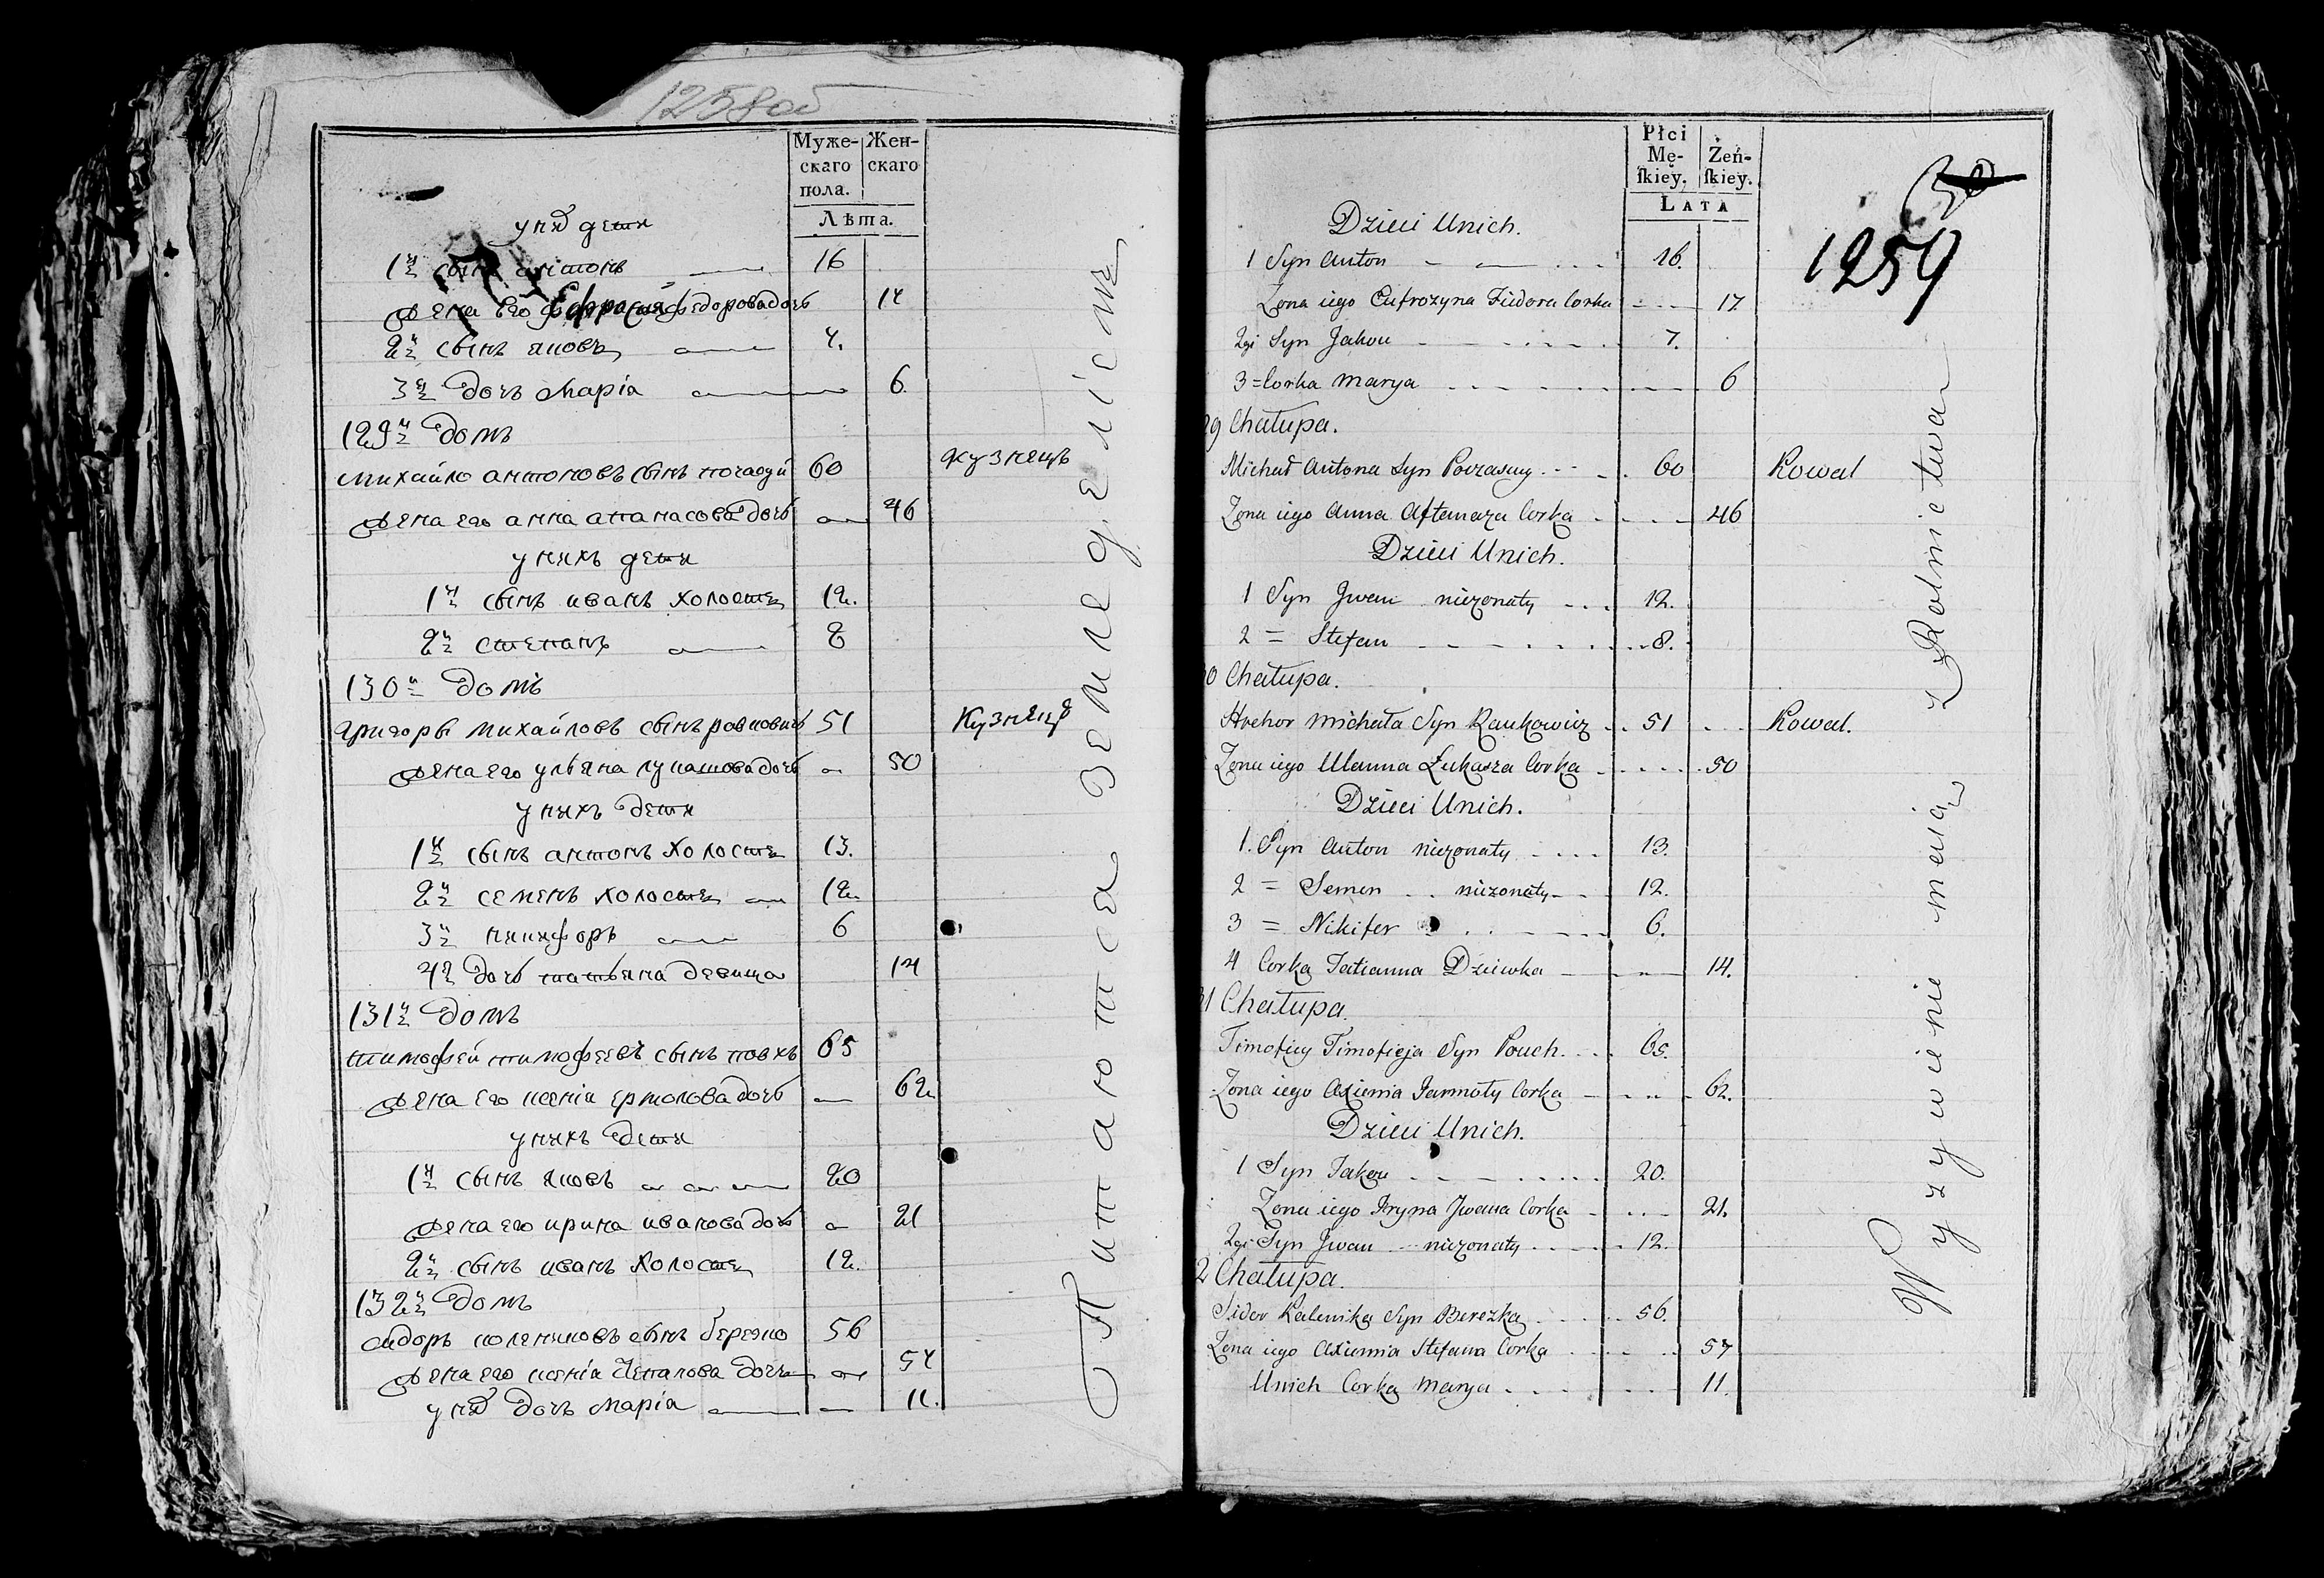 1258об
Муже-
скаго
пола.
Жен-
скаго
Лѣта.
у них дети
1й сынъ антонъ 16
жена его Ефросия федорова дочь 17
2й сынъ яковъ 7.
3я дочь Марiа 6.
129й домъ
михайло антоновъ сынъ 60 кузнецъ
жена его анна апанасова дочь 46
у нихъ дети
1й сынъ иванъ холостъ 12.
2й степанъ 8
130й домъ
григоры михайловъ сынъ равковичъ 51 Кузнецъ
жена его ульяна лукашова дочь 50
у нихъ дети
1й сынъ антонъ холостъ 13.
2й семенъ холостъ 12.
3й никифоръ 6
4я дочь татьяна девица 14
131й домъ
тимофей тимофеевъ сынъ повхъ 65
жена его ксенiа ермолова дочь 62
у нихъ дети
1й сынъ яковъ 20
жена его ирина иванова дочь 21
2й сынъ иванъ холостъ 12.
132й домъ
сидоръ калениковъ сынъ березко 56
жена его ксенiа степанова дочь 57
у них дочь марiа 11.
Питаются земледелiемъ
Płci
Mę-
ſkiey.
Żeń-
ſkiey.
LATA
1259
Dzieci Unich.
1 Syn Anton 16.
Zona iego Eufrozyna Fiedora Corka 17
2gi Syn Jakow 7.
3 = Corka Marya 6
29 Chałupa.
Michał Antona Syn 60 Kowal
Zona iego Anna Aftanaza Corka 46
Dzieci Unich.
1 Syn Jwan niezonaty 12.
2 = Stefan 8.
0 Chałupa.
Hrehor Michała Syn Raukowicz 51 Kowal.
Zona iego Ulanna Łukasza Corka 50
Dzieci Unich.
1. Syn Anton niezonaty 13.
2 = Semen niezonaty 12.
3 = Nikifer 6.
4 Corka Tatianna Dziewka 14.
31 Chałupa.
Timofiey Timofieja Syn Pouch. 65.
Zona iego Axienia Jarmoły Corka 62.
Dzieci Unich.
1 Syn Jakow 20.
Zona iego Jryna Jwana Corka 21.
2gi Syn Jwan niezonaty 12.
2 Chałupa.
Sidor Kalenika Syn Berezka 56.
Zona iego Axienia Stefana Corka 57
Unich Corka Marya 11.
Wyzywienie maią z Rolnictwa